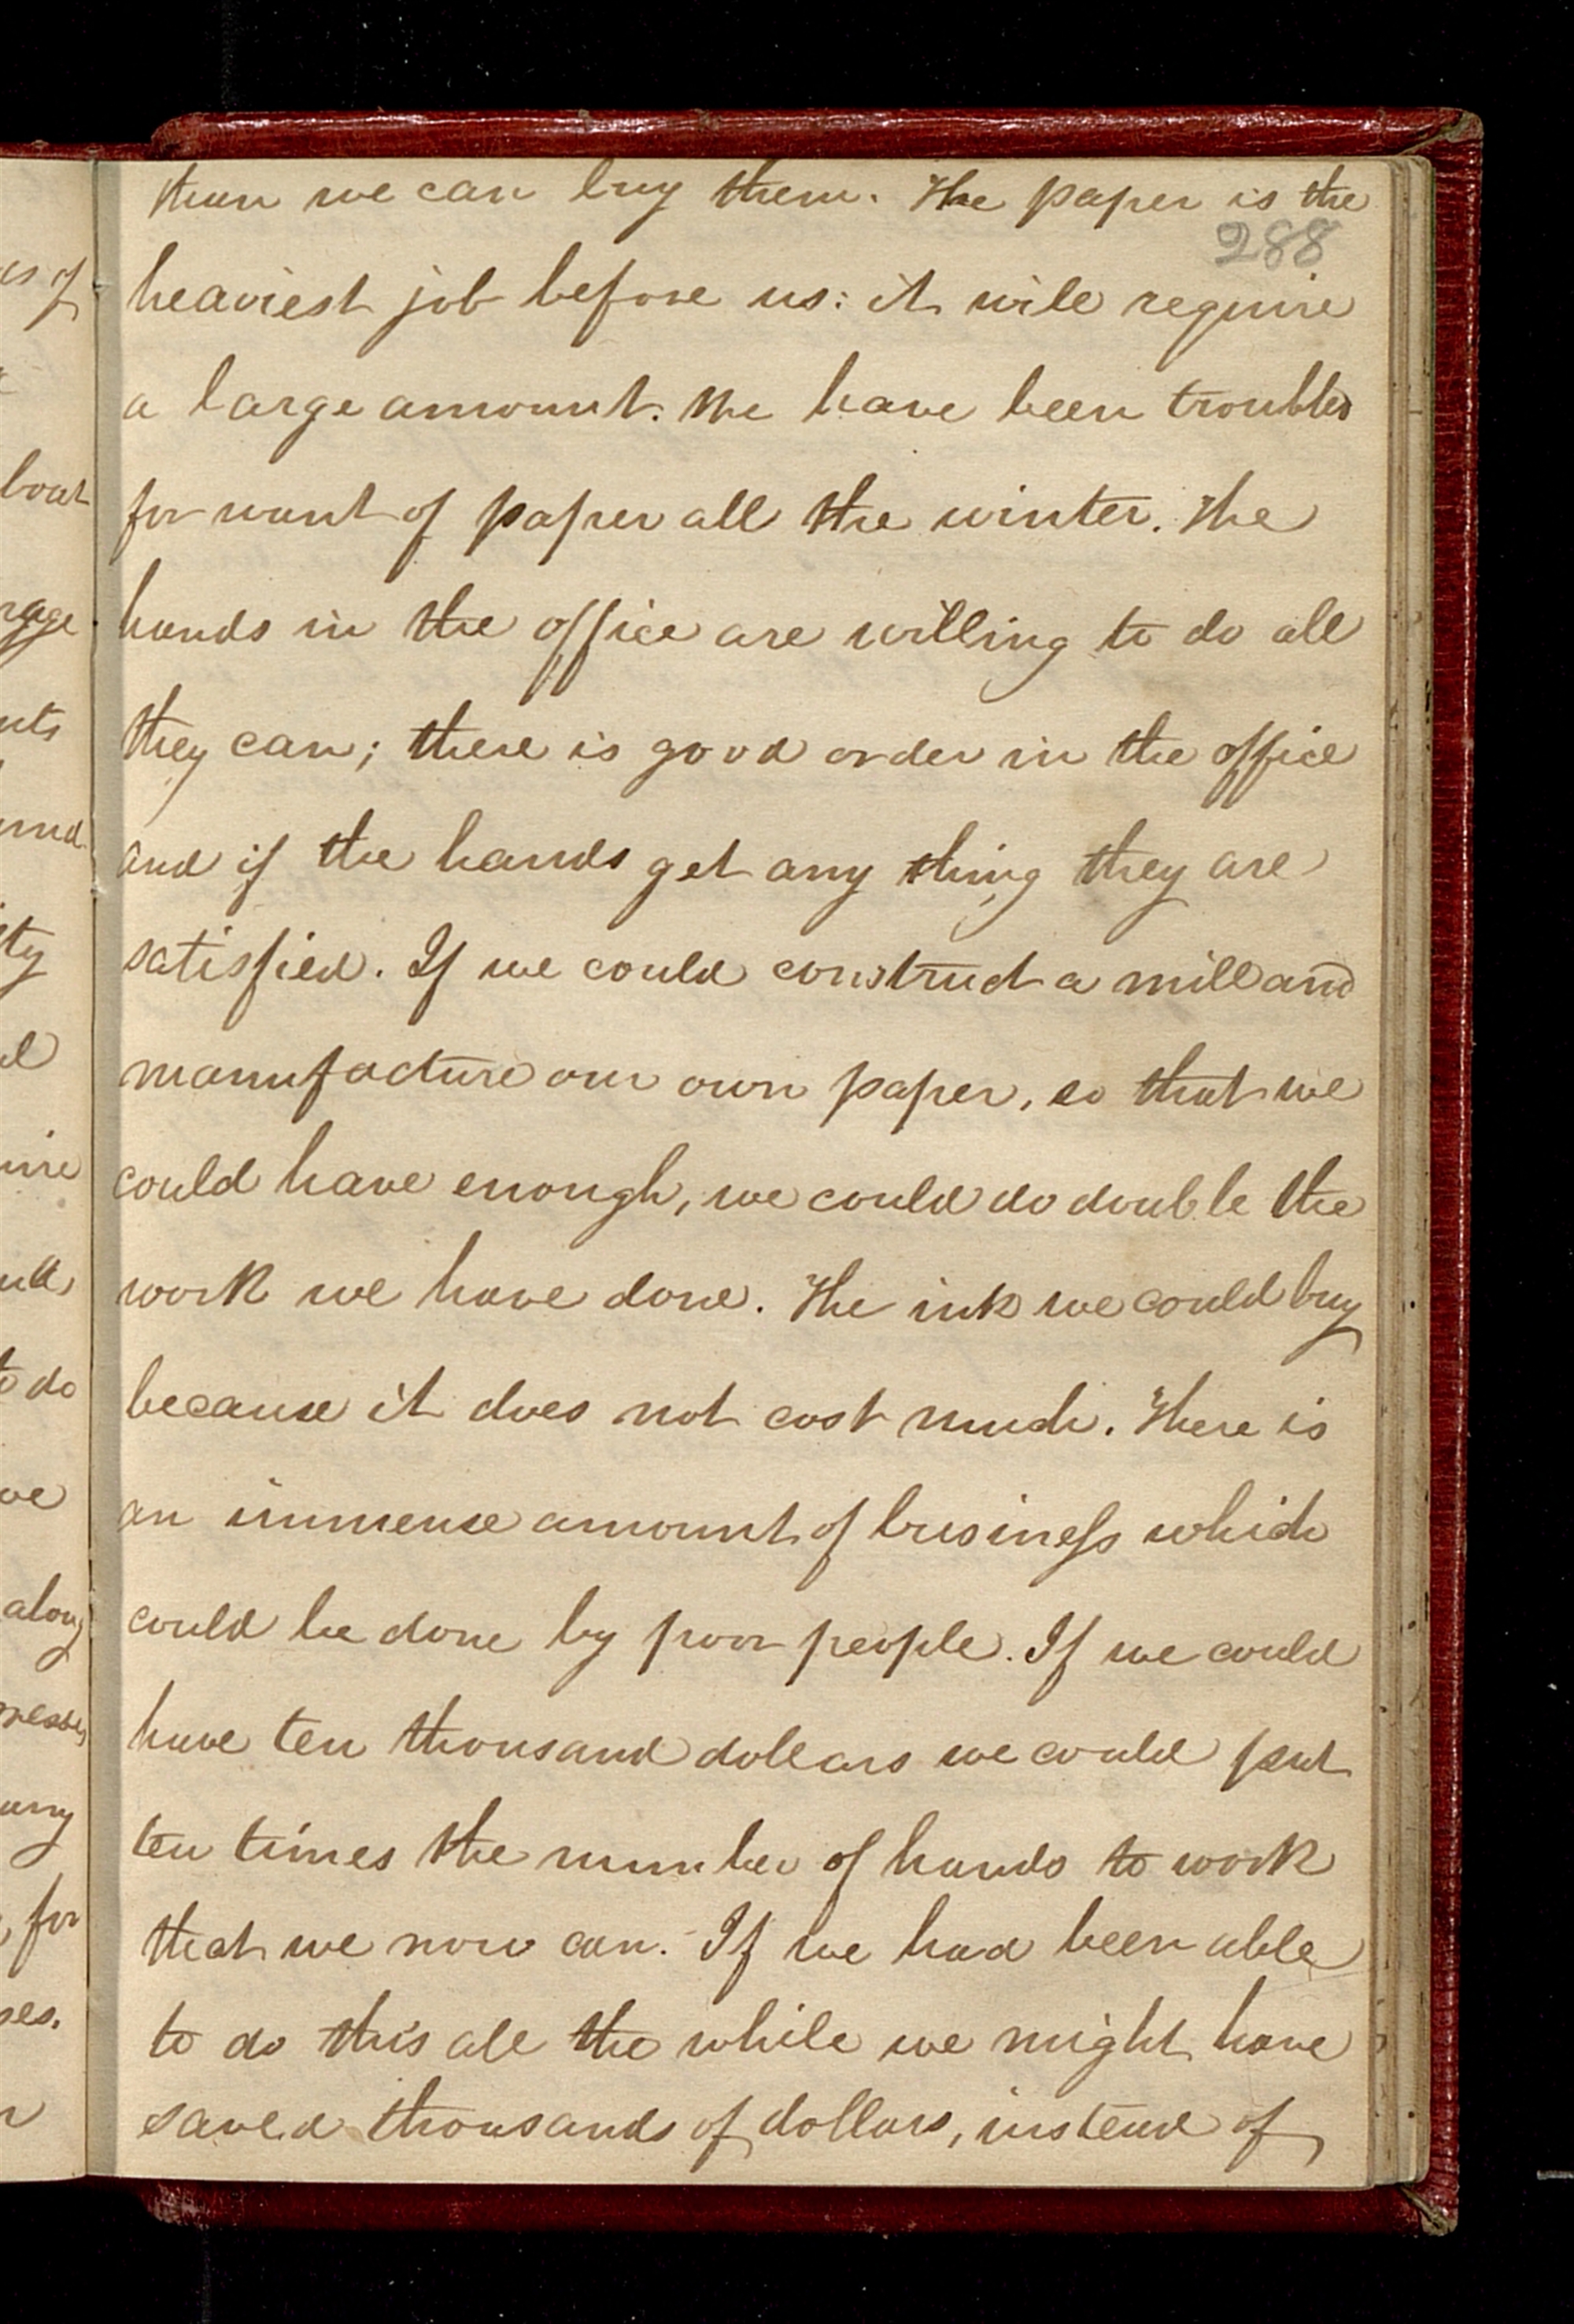 than we can buy them. The paper is the
288
heaviest job before us: it will require
a large amount. We have been troubled
for want of paper all the winter. The
hands in the office are willing to do all
they can; there is good order in the office
and if the hands get any thing they are
satisfied. If we could construct a mill and
manufacture our own paper, so that we
could have enough, we could do double the
work we have done. The ink we could buy
because it does not cost much. There is
an immense amount of business which
could be done by poor people. If we could
have ten thousand dollars we could put
ten times the number of hands to work
that we now can. If we had been able
to do this all the while we might have
saved thousands of dollars, instead of
es of
boat
rage
nts
ty
to do
ve
along
for